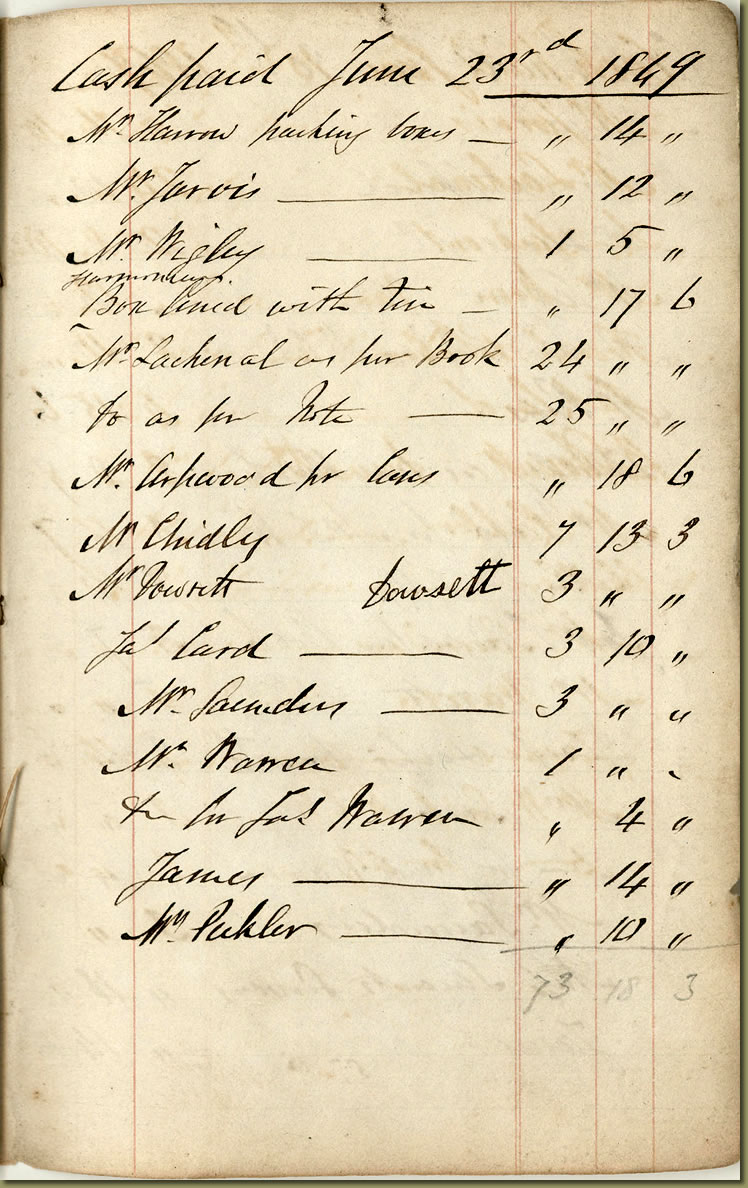 Cash paid June 23rd 1849
Mr. Harrow packing boxes — " 14 "
Mr. Jarvis — " 12 "
Mr. Wigley — 1 5 "
Harmoniums.
Box lined with tin — " 17 6
Mr. Lachenal as per Book 24 " "
Do as per Note — 25 " "
Mr. Aspwood pr Cases " 18 6
Mr Chidley 7 13 3
Mr Dowsett Dowsett 3 " "
Jas Card — 3 10 "
Mr. Saunders — 3 " "
Mr. Warren 1 " "
Do for Jas Warren " 4 "
James — " 14 "
Mr Peckler — " 10 "
73 18 3